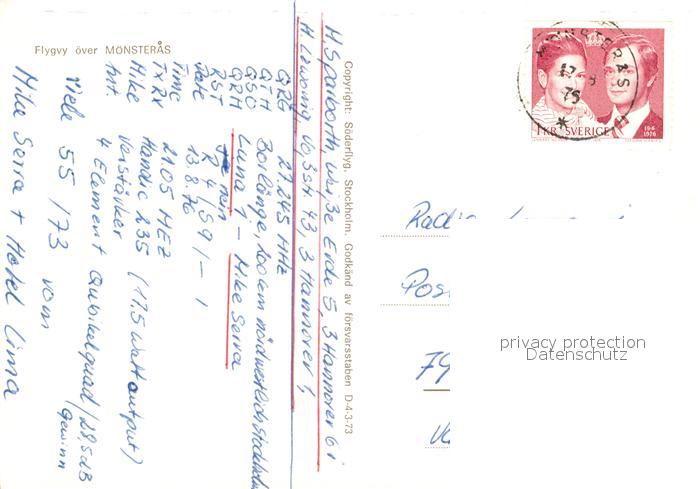 Flygvy över MÖNSTERÅS
Copyright: Söderflyg, Stockholm. Godkänd av försvarsstaben D-4-3-73
H. Sparborth, weiße Erde 5, 3 Hannover 61
H. Lewonig, 43, 3 Hannover 1,
QRG 27.245 MHz
QTH Borlänge, 200 km nordwestlich Stockholm
QSO Luna 1 - Mike Serra
QRM nein
RST R 4 / S 9 / - 1
Date 13.8.76
Time 21.05 MEZ
TX RX Handic 235 (17,5 Watt output)
Mike Verstärker
Ant 4 Element Qubikelquad / 28,5 dB Gewinn
Viele 55 / 73 vom
Mike Serra + Hotel Lima
MÖNSTERÅS
1 KR SVERIGE
19-6
1976
Pos
79
privacy protection
Datenschutz